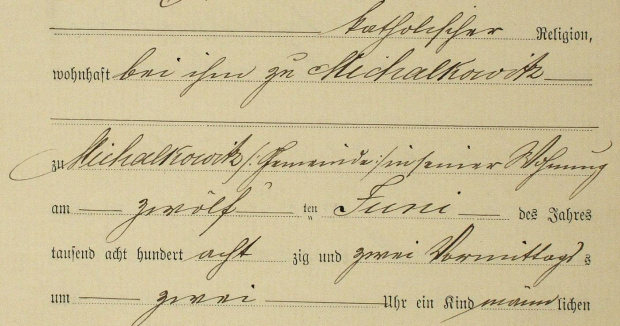 katholischer Religion,
wohnhaft bei ihm zu Michalkowitz
zu Michalkowitz /: Gemeinde :/ in seiner Wohnung
am zwölf ten Juni des Jahres
tausend acht hundert acht zig und zwei Vormittags s
um zwei Uhr ein Kind männlichen